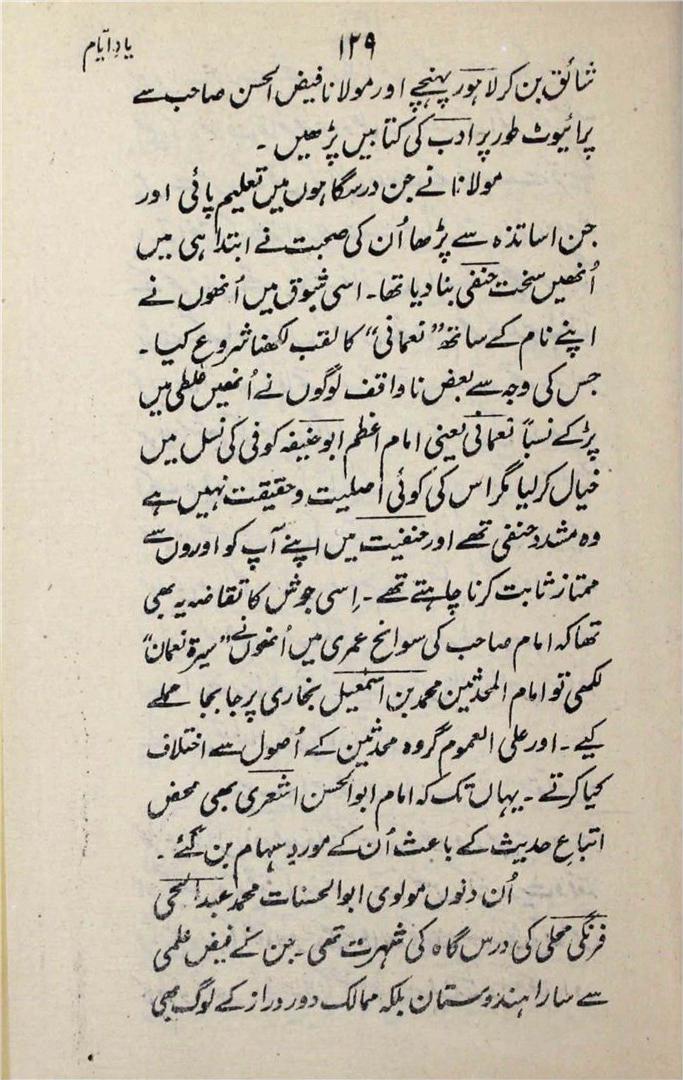 یادِ ایام
۱۲۹
شائق بن کر لاہور پہنچے اور مولانا فیض الحسن صاحب سے
پرائیوٹ طور پر ادب کی کتابیں پڑھیں ۔
مولانا نے جن درسگاہوں میں تعلیم پائی اور
جن اساتذہ سے پڑھا اُن کی صحبت نے ابتدا ہی میں
اُنھیں سخت حنفی بنا دیا تھا۔ اسی شوق میں اُنھوں نے
اپنے نام کے ساتھ ”نعمانی“ کا لقب لکھنا شروع کیا ۔
جس کی وجہ سے بعض ناواقف لوگوں نے اُنھیں غلطی میں
پڑ کے نسباً نعمانی یعنی امام اعظم ابو حنیفہ کوفی کی نسل میں
خیال کر لیا مگر اس کی کوئی اصلیت و حقیقت نہیں ہے
وہ مشدد حنفی تھے اور حنفیت میں اپنے آپ کو اوروں سے
ممتاز ثابت کرنا چاہتے تھے ۔ اِسی جوش کا تقاضہ یہ بھی
تھا کہ امام صاحب کی سوانح عمری میں اُنھوں نے ”سیرۃ نعمان“
لکھی تو امام المحدثین محمد بن اسمٰعیل بخاری پر جا بجا حملے
کیے ۔ اور علی العموم گروہ محدثین کے اُصول سے اختلاف
کیا کرتے ۔ یہاں تک کہ امام ابو الحسن اشعری بھی محض
اتباعِ حدیث کے باعث اُن کے موردِ سہام بن گئے ۔
اُن دنوں مولوی ابو الحسنات محمد عبد الحی
فرنگی محلی کی درس گاہ کی شہرت تھی ۔ جن کے فیض علمی
سے سارا ہندوستان بلکہ ممالک دور دراز کے لوگ بھی